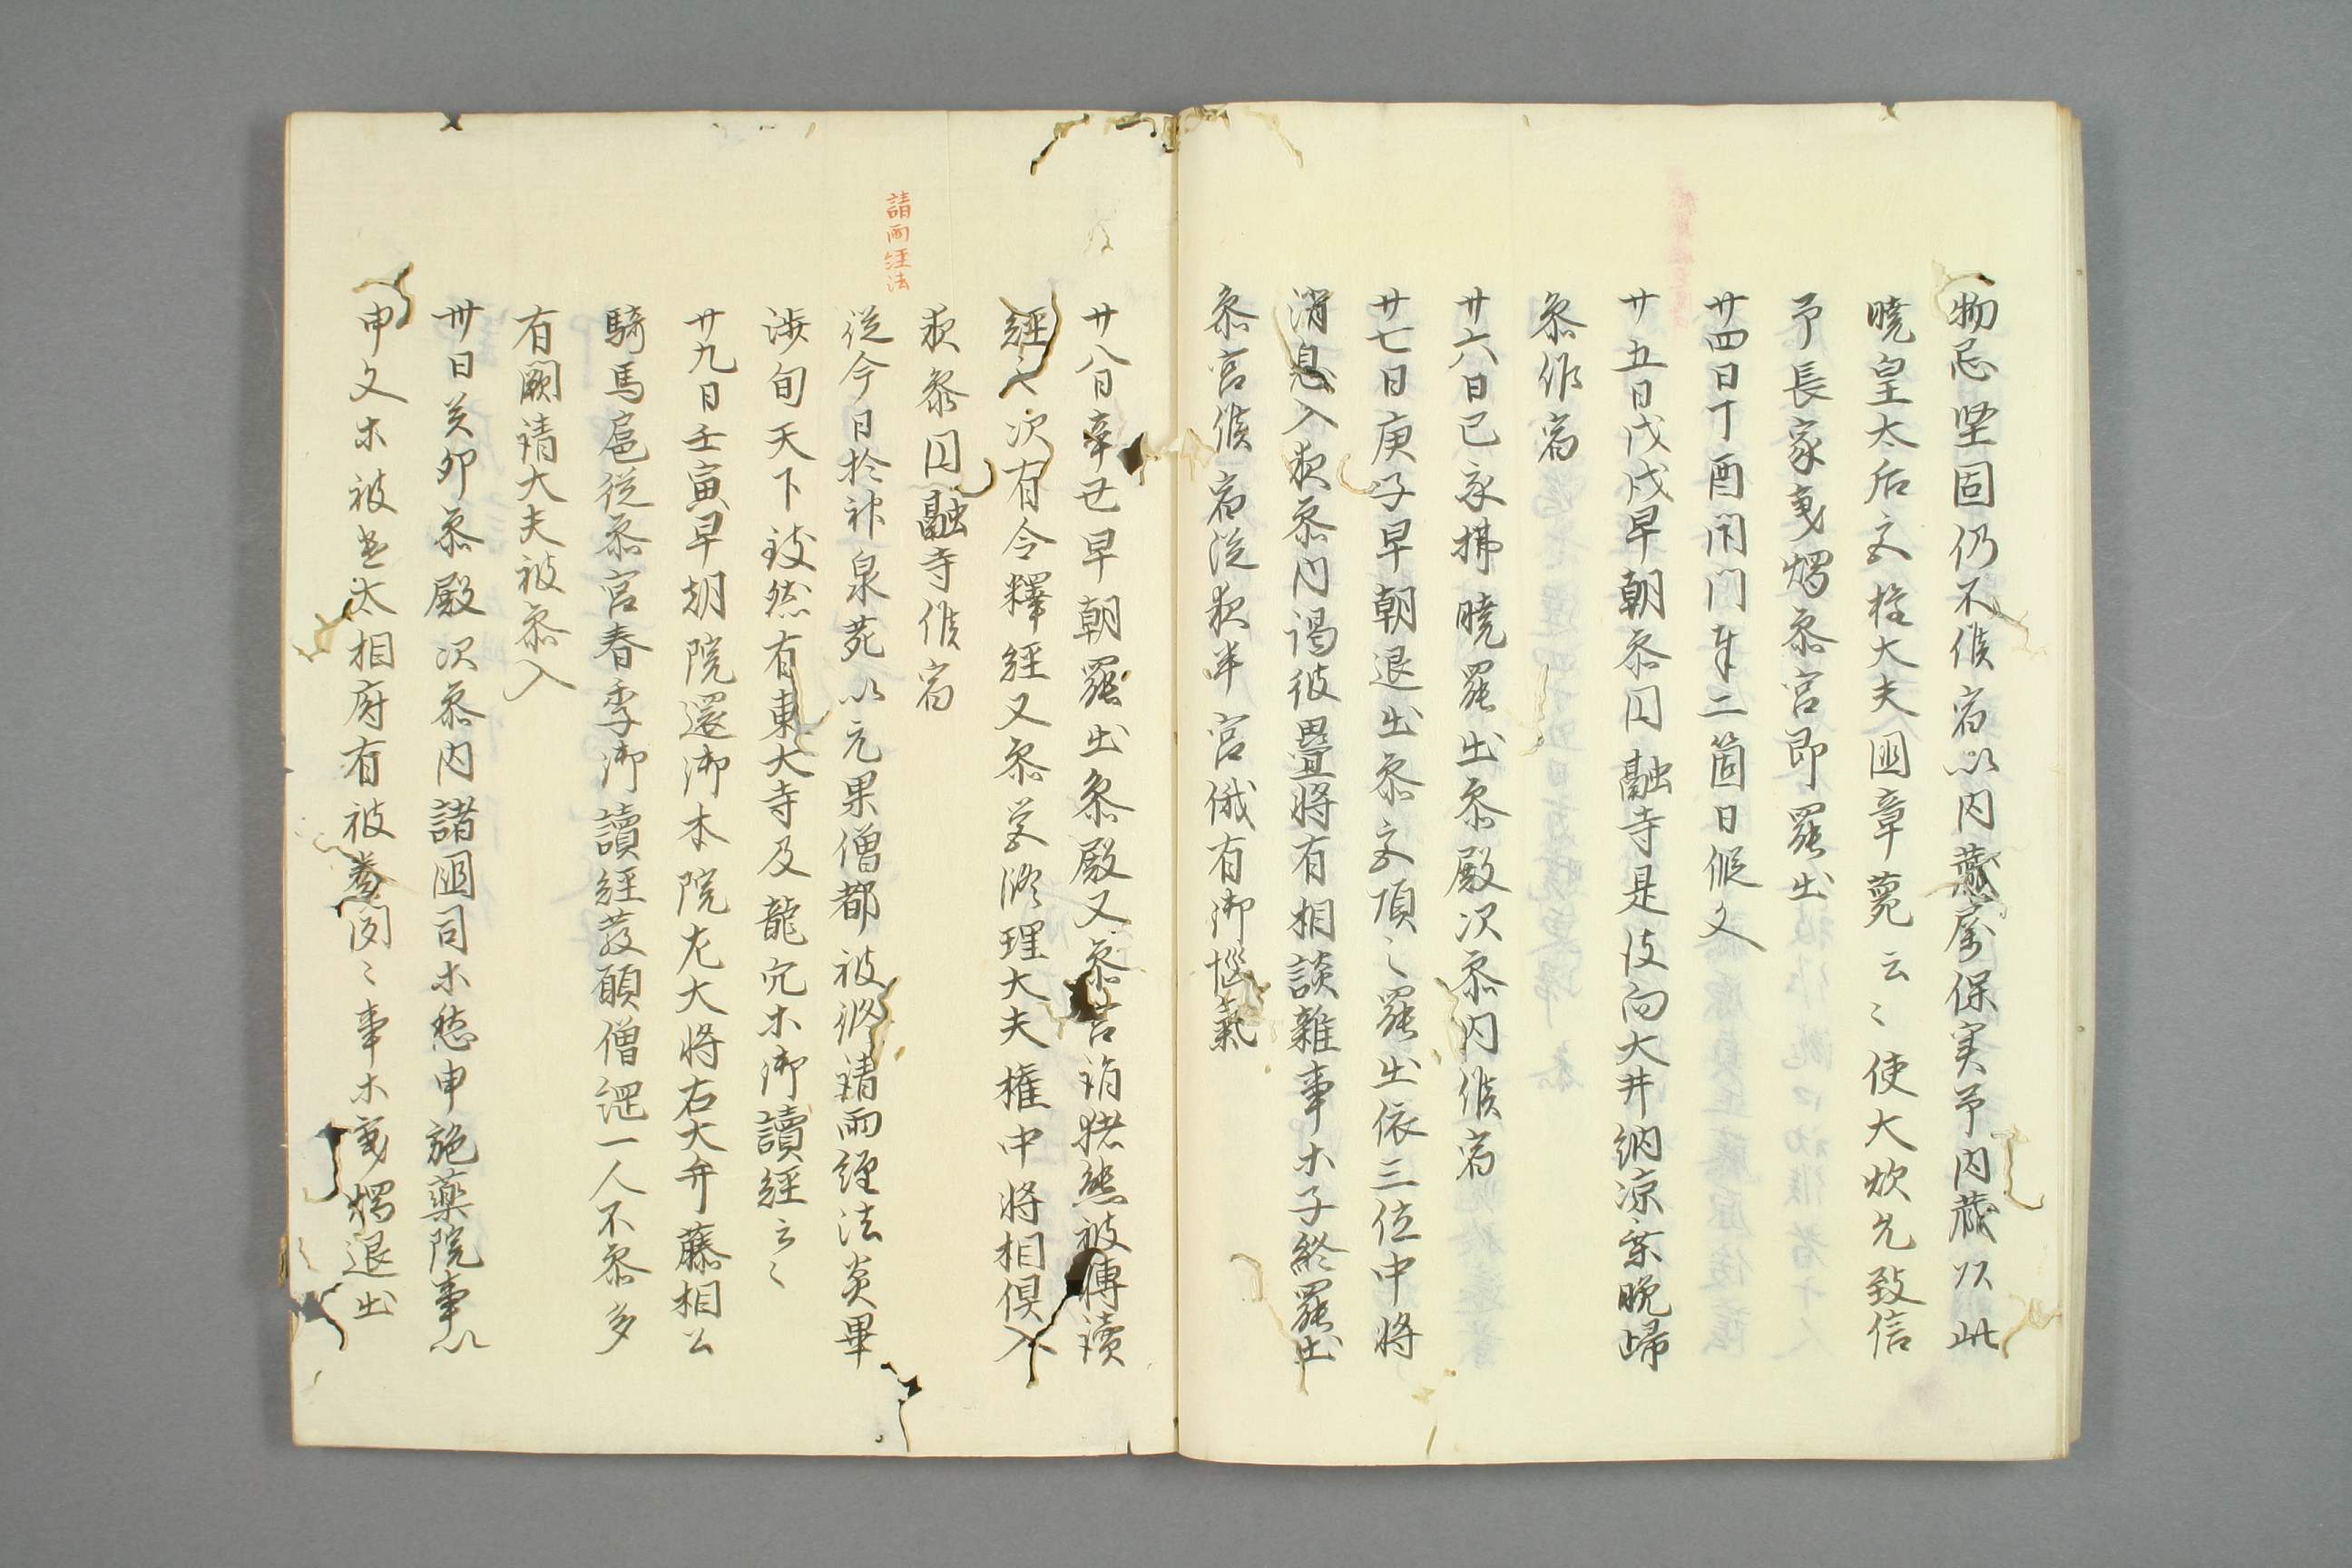 物忌堅固仍不候宿以内蔵属保実予内蔵以此
暁皇太后宮権大夫国章薨云〻使大炊允致信
予長家秉燭参宮即罷出
廿四日丁酉閇門奉二箇日假文
廿五日戊戌早朝参円融寺是後向大井納凉乗晩帰
参作宿
廿六日己亥拂曉罷出参殿次参内候宿
廿七日庚子早朝退出参宮頂之罷出依三位中将
消息入夜参内謁彼疊将有相談雜事木子終罷出
参宮候宿從夜半宮俄有御悩氣
廿八日辛丑早朝罷出参殿又参
經之次有令釋經又参宮修理大夫權中将相倶入
夜参円融寺候宿
請雨経法
從今日於神泉苑以元果僧都被修請雨経法炎旱
渉旬天下
有東大寺及龍穴木御讀經云〻
廿九日壬寅早朝院還御本院左大将右大弁藤相公
騎馬扈從参宮春季御讀經發願僧綱一人不参多
有闕請大夫被参入
卅日癸卯参殿次参内諸國司木愁申施藥院事以
申文木被
太相府有被
事木秉燭退出